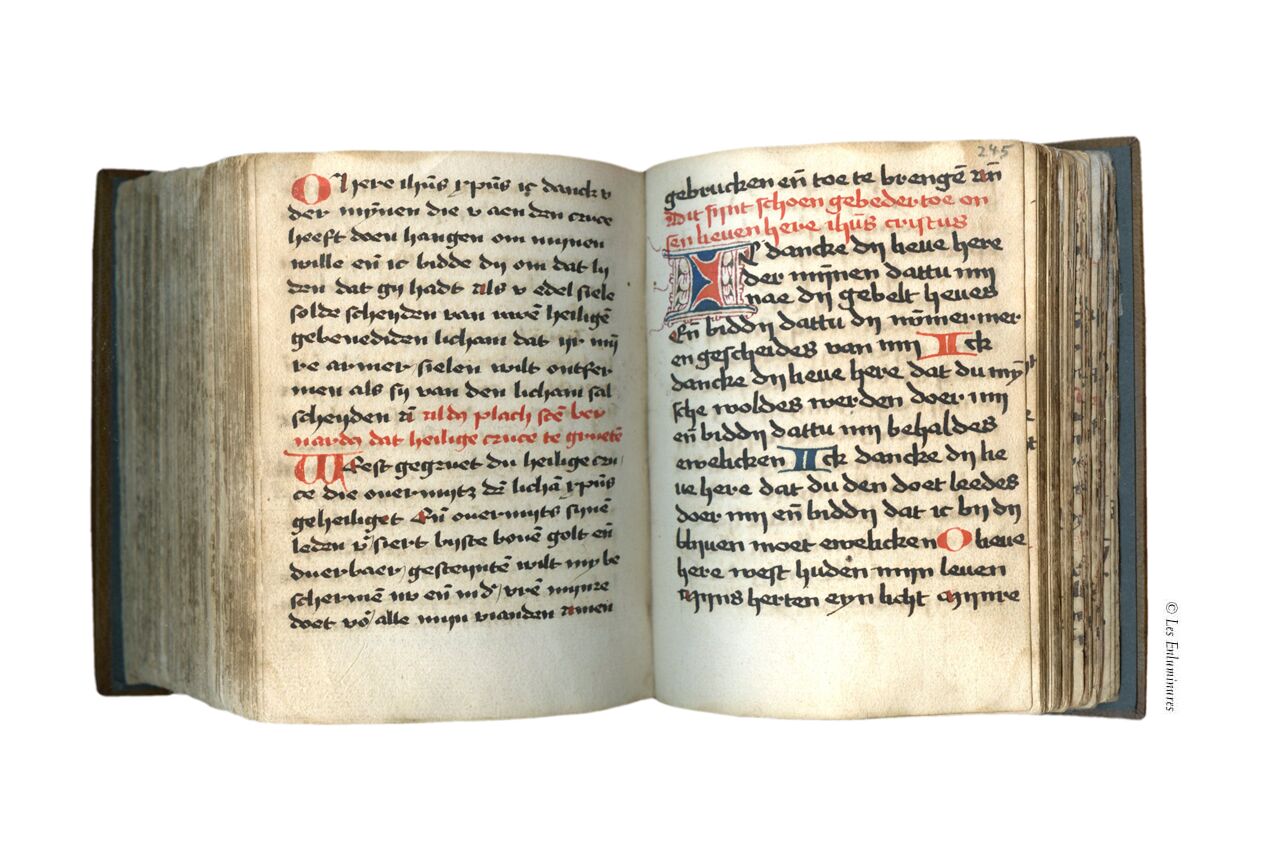 O here ihūs xpūs ic danck v
der mÿnen die v aen den cruce
heeft doen hangen om mijnen
wille en̄ ic bidde dij om dat lij
den dat gij hadt als v edel siele
solde scheijden van uwē heiligē
gebenediden licham dat
re armer sielen wilt ontfer
men als sij van den licham sal
scheijden
plach ber
nardꝫ dat heilige cruce te gruetē
West gegruet du heilige cru
ce die ouermijtz lichā xpūs
geheiliget En̄ ouermijts sijnē
leden siert bouē golt en̄
duerbaer gesteijntē wilt mij be
schermē nv en̄ in mijnre
doet alle mijn vianden amen
245
gebrucken en̄ toe te brengē
Dit sijnt schoen gebeder toe on
sen lieuen here ihūs cristus
Ic dancke dij lieue here
der mÿnen dattu mij
nae dij gebelt heues
En̄ bid dij dattu dij nūmermer
en gescheides van mij Ick
dancke dij lieue here dat du
sche woldes werden doer mij
en̄ bid dij dattu mij behaldes
ewelicken Ick dancke dij lie
ue here dat du den doet leedes
doer mij en̄ bid dij dat ic bij dij
blijuen moet ewelicken O lieue
here west huden mijn leuen
mijns herten eyn licht mijnre
© Les Enluminures